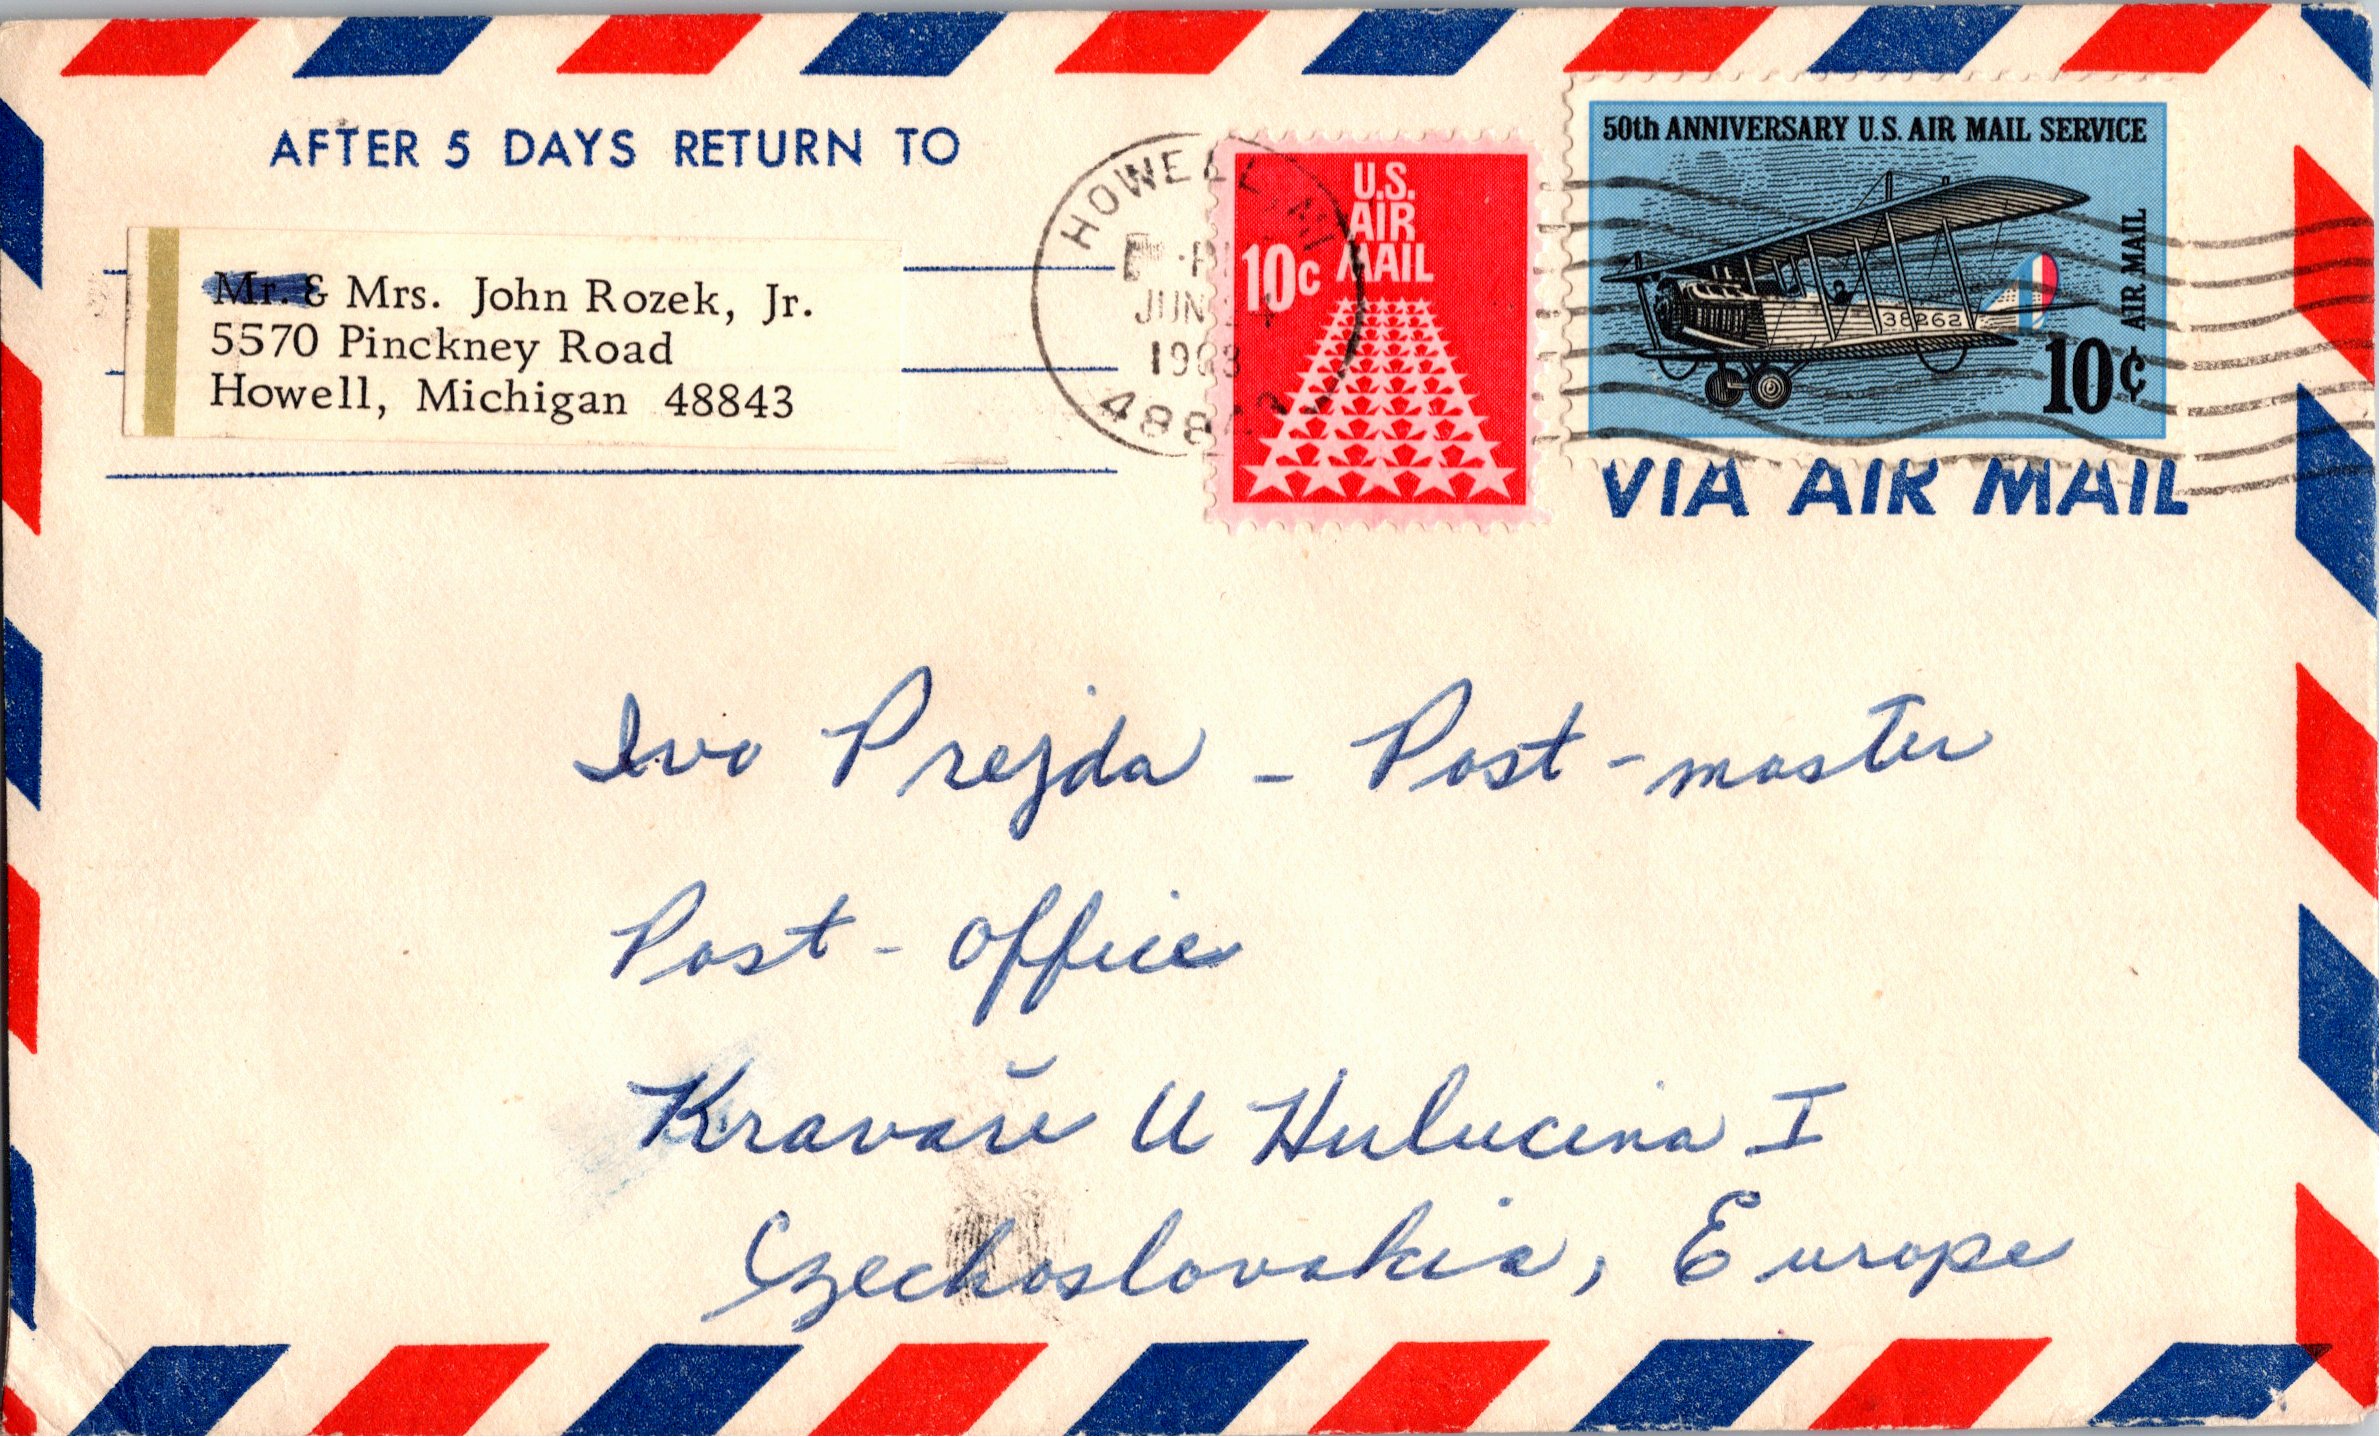 AFTER 5 DAYS RETURN TO
Mr. & Mrs. John Rozek, Jr.
5570 Pinckney Road
Howell, Michigan 48843
HOWELL, MI
JUN
48843
U.S.
AIR
10c MAIL
50th ANNIVERSARY U.S. AIR MAIL SERVICE
AIR MAIL
38262
10¢
VIA AIR MAIL
Ivo Prejda - Post-master
Post-office
Kravaře U Hulucina I
Czechoslovakia, Europe